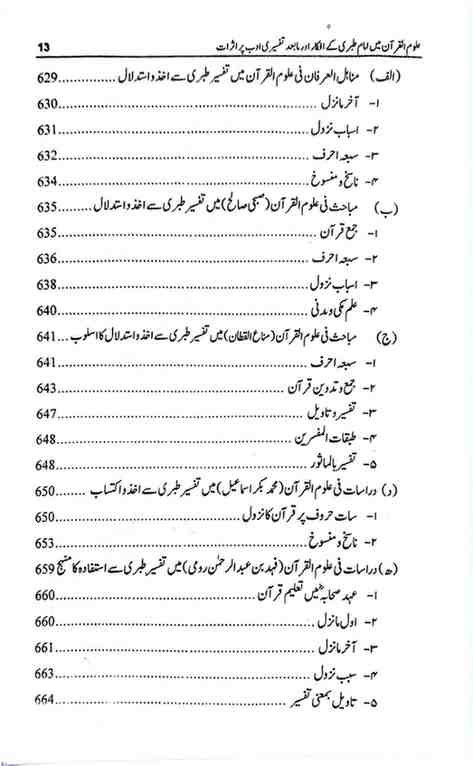 علوم القرآن میں امام طبری کے افکار اور مابعد تفسیری ادب پر اثرات 13
(الف) مناہل العرفان فی علوم القرآن میں تفسیر طبری سے اخذ و استدلال ............. 629
۱- آخر مانزل ............. 630
۲- اسباب نزول ............. 631
۳- سبعہ احرف ............. 632
۴- ناسخ و منسوخ ............. 634
(ب) مباحث فی علوم القرآن (صبحی صالح) میں تفسیر طبری سے اخذ و استدلال ......... 635
۱- جمع قرآن ............. 635
۲- سبعہ احرف ............. 636
۳- اسباب نزول ............. 638
۴- علم مکی و مدنی ............. 640
(ج) مباحث فی علوم القرآن (مناع القطان) میں تفسیر طبری سے اخذ و استدلال کا اسلوب ... 641
۱- سبعہ احرف ............. 641
۲- جمع و تدوین قرآن ............. 643
۳- تفسیر و تاویل ............. 647
۴- طبقات المفسرین ............. 648
۵- تفسیر بالماثور ............. 648
(د) دراسات فی علوم القرآن (محمد بکر اسماعیل) میں تفسیر طبری سے اخذ و اکتساب ........ 650
۱- سات حروف پر قرآن کا نزول ............. 650
۲- ناسخ و منسوخ ............. 653
(ھ) دراسات فی علوم القرآن (فہد بن عبد الرحمٰن رومی) میں تفسیر طبری سے استفادہ کا منہج 659
۱- عہد صحابہؓ میں تعلیم قرآن ............. 660
۲- اول مانزل ............. 660
۳- آخر مانزل ............. 661
۴- سبب نزول ............. 663
۵- تاویل بمعنی تفسیر ............. 664